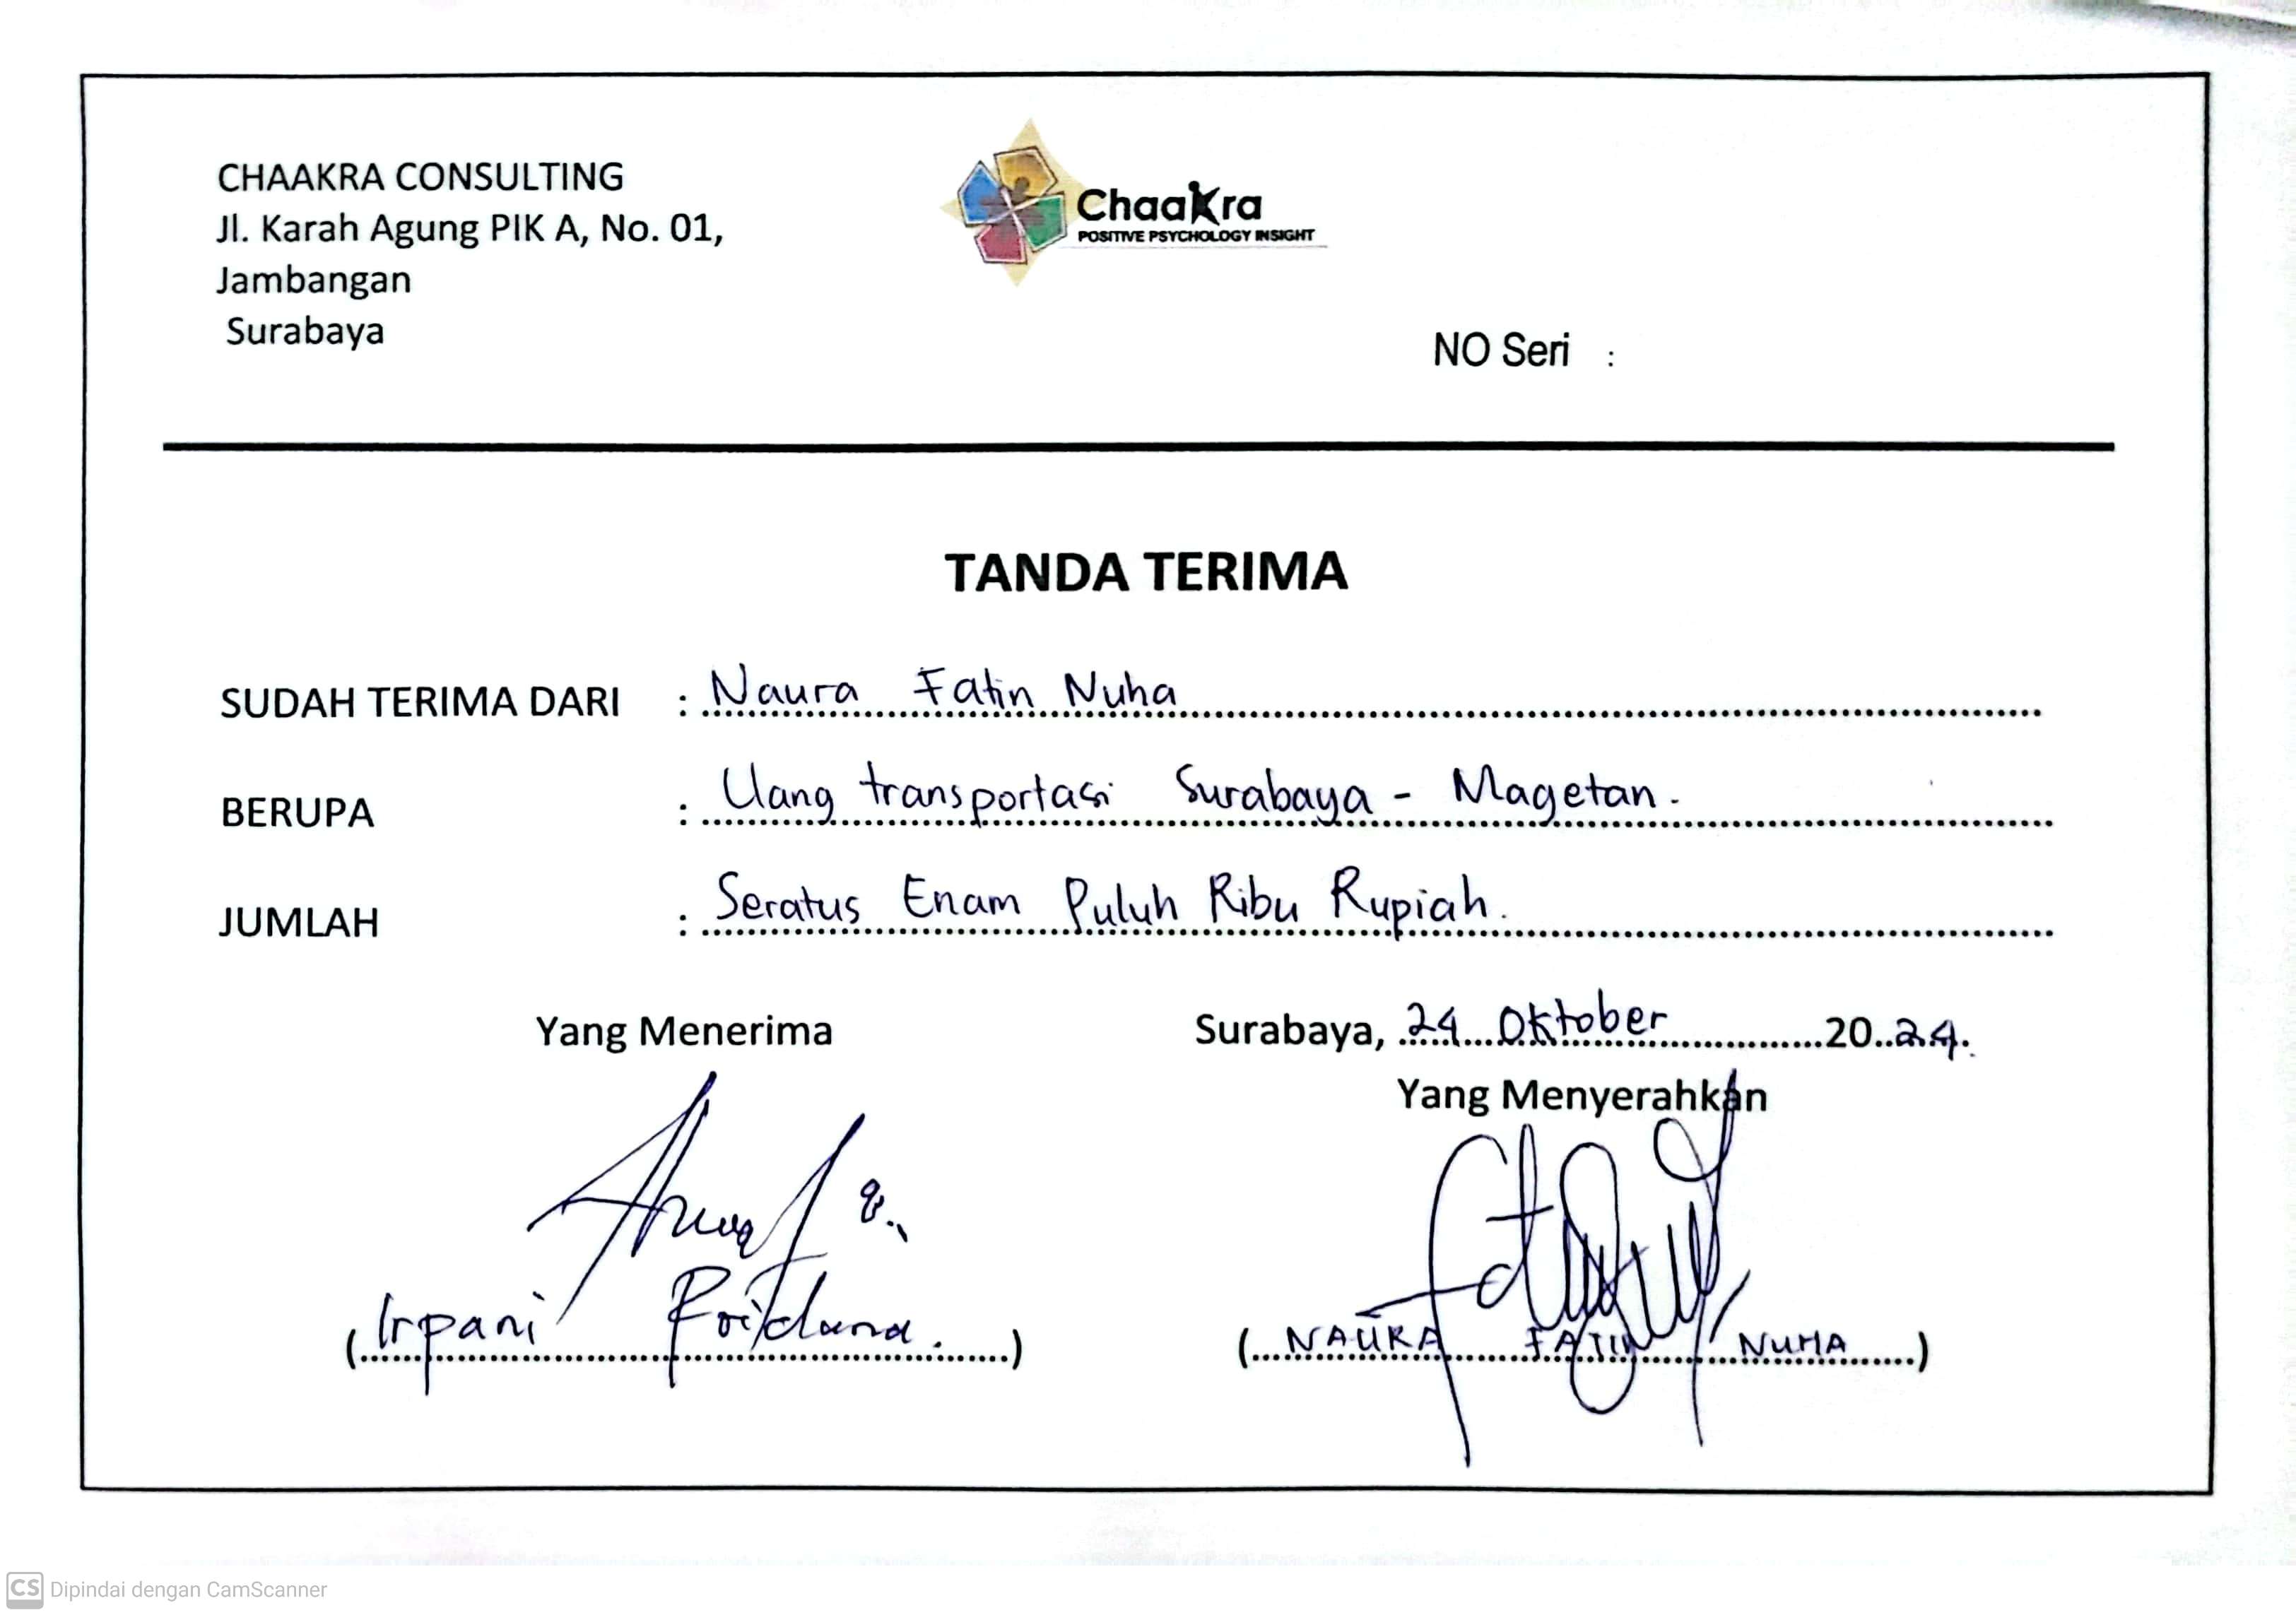 CHAAKRA CONSULTING
Jl. Karah Agung PIK A, No. 01,
Jambangan
Surabaya
ChaaKra
POSITIVE PSYCHOLOGY INSIGHT
NO Seri :
TANDA TERIMA
SUDAH TERIMA DARI : Naura Fatin Nuha
BERUPA : Uang transportasi Surabaya - Magetan.
JUMLAH : Seratus Enam Puluh Ribu Rupiah.
Yang Menerima
Surabaya, 24 Oktober 2024.
Yang Menyerahkan
(Irpani)
(NAURA FATIN NUHA)
CS Dipindai dengan CamScanner